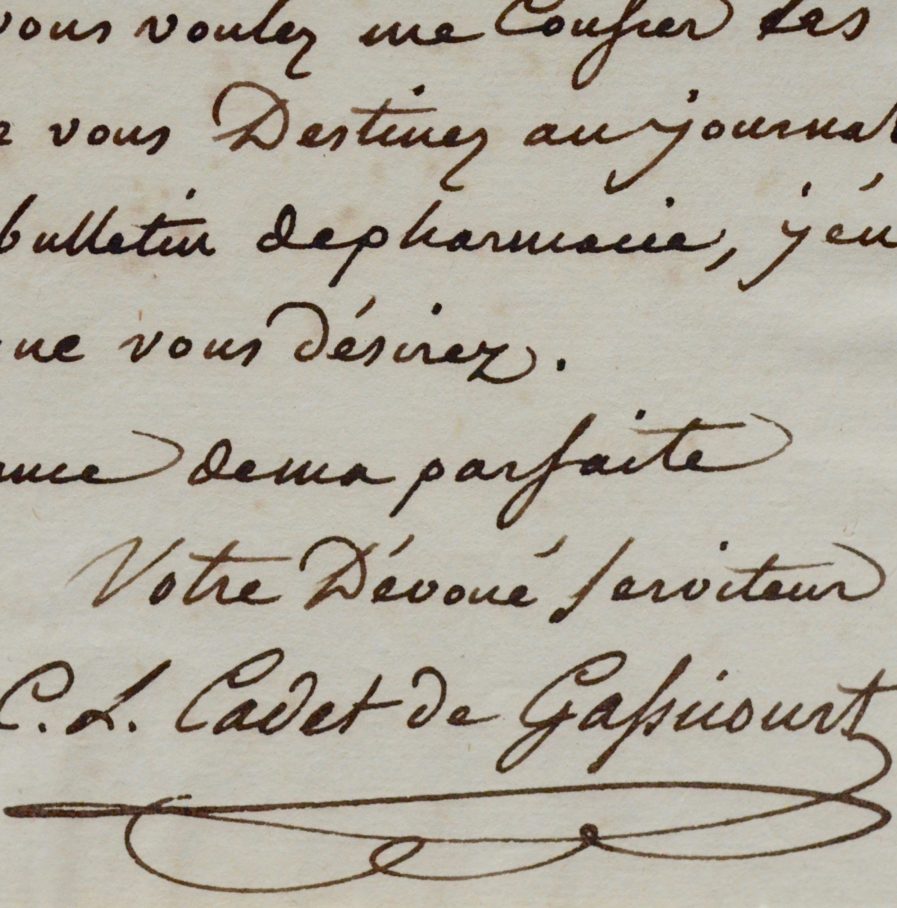 vous voulez me Confier les
vous Destinez au journal
bulletin de pharmacie, j'en
que vous désirez.
de ma parfaite
Votre Dévoué serviteur
C. L. Cadet de Gassicourt